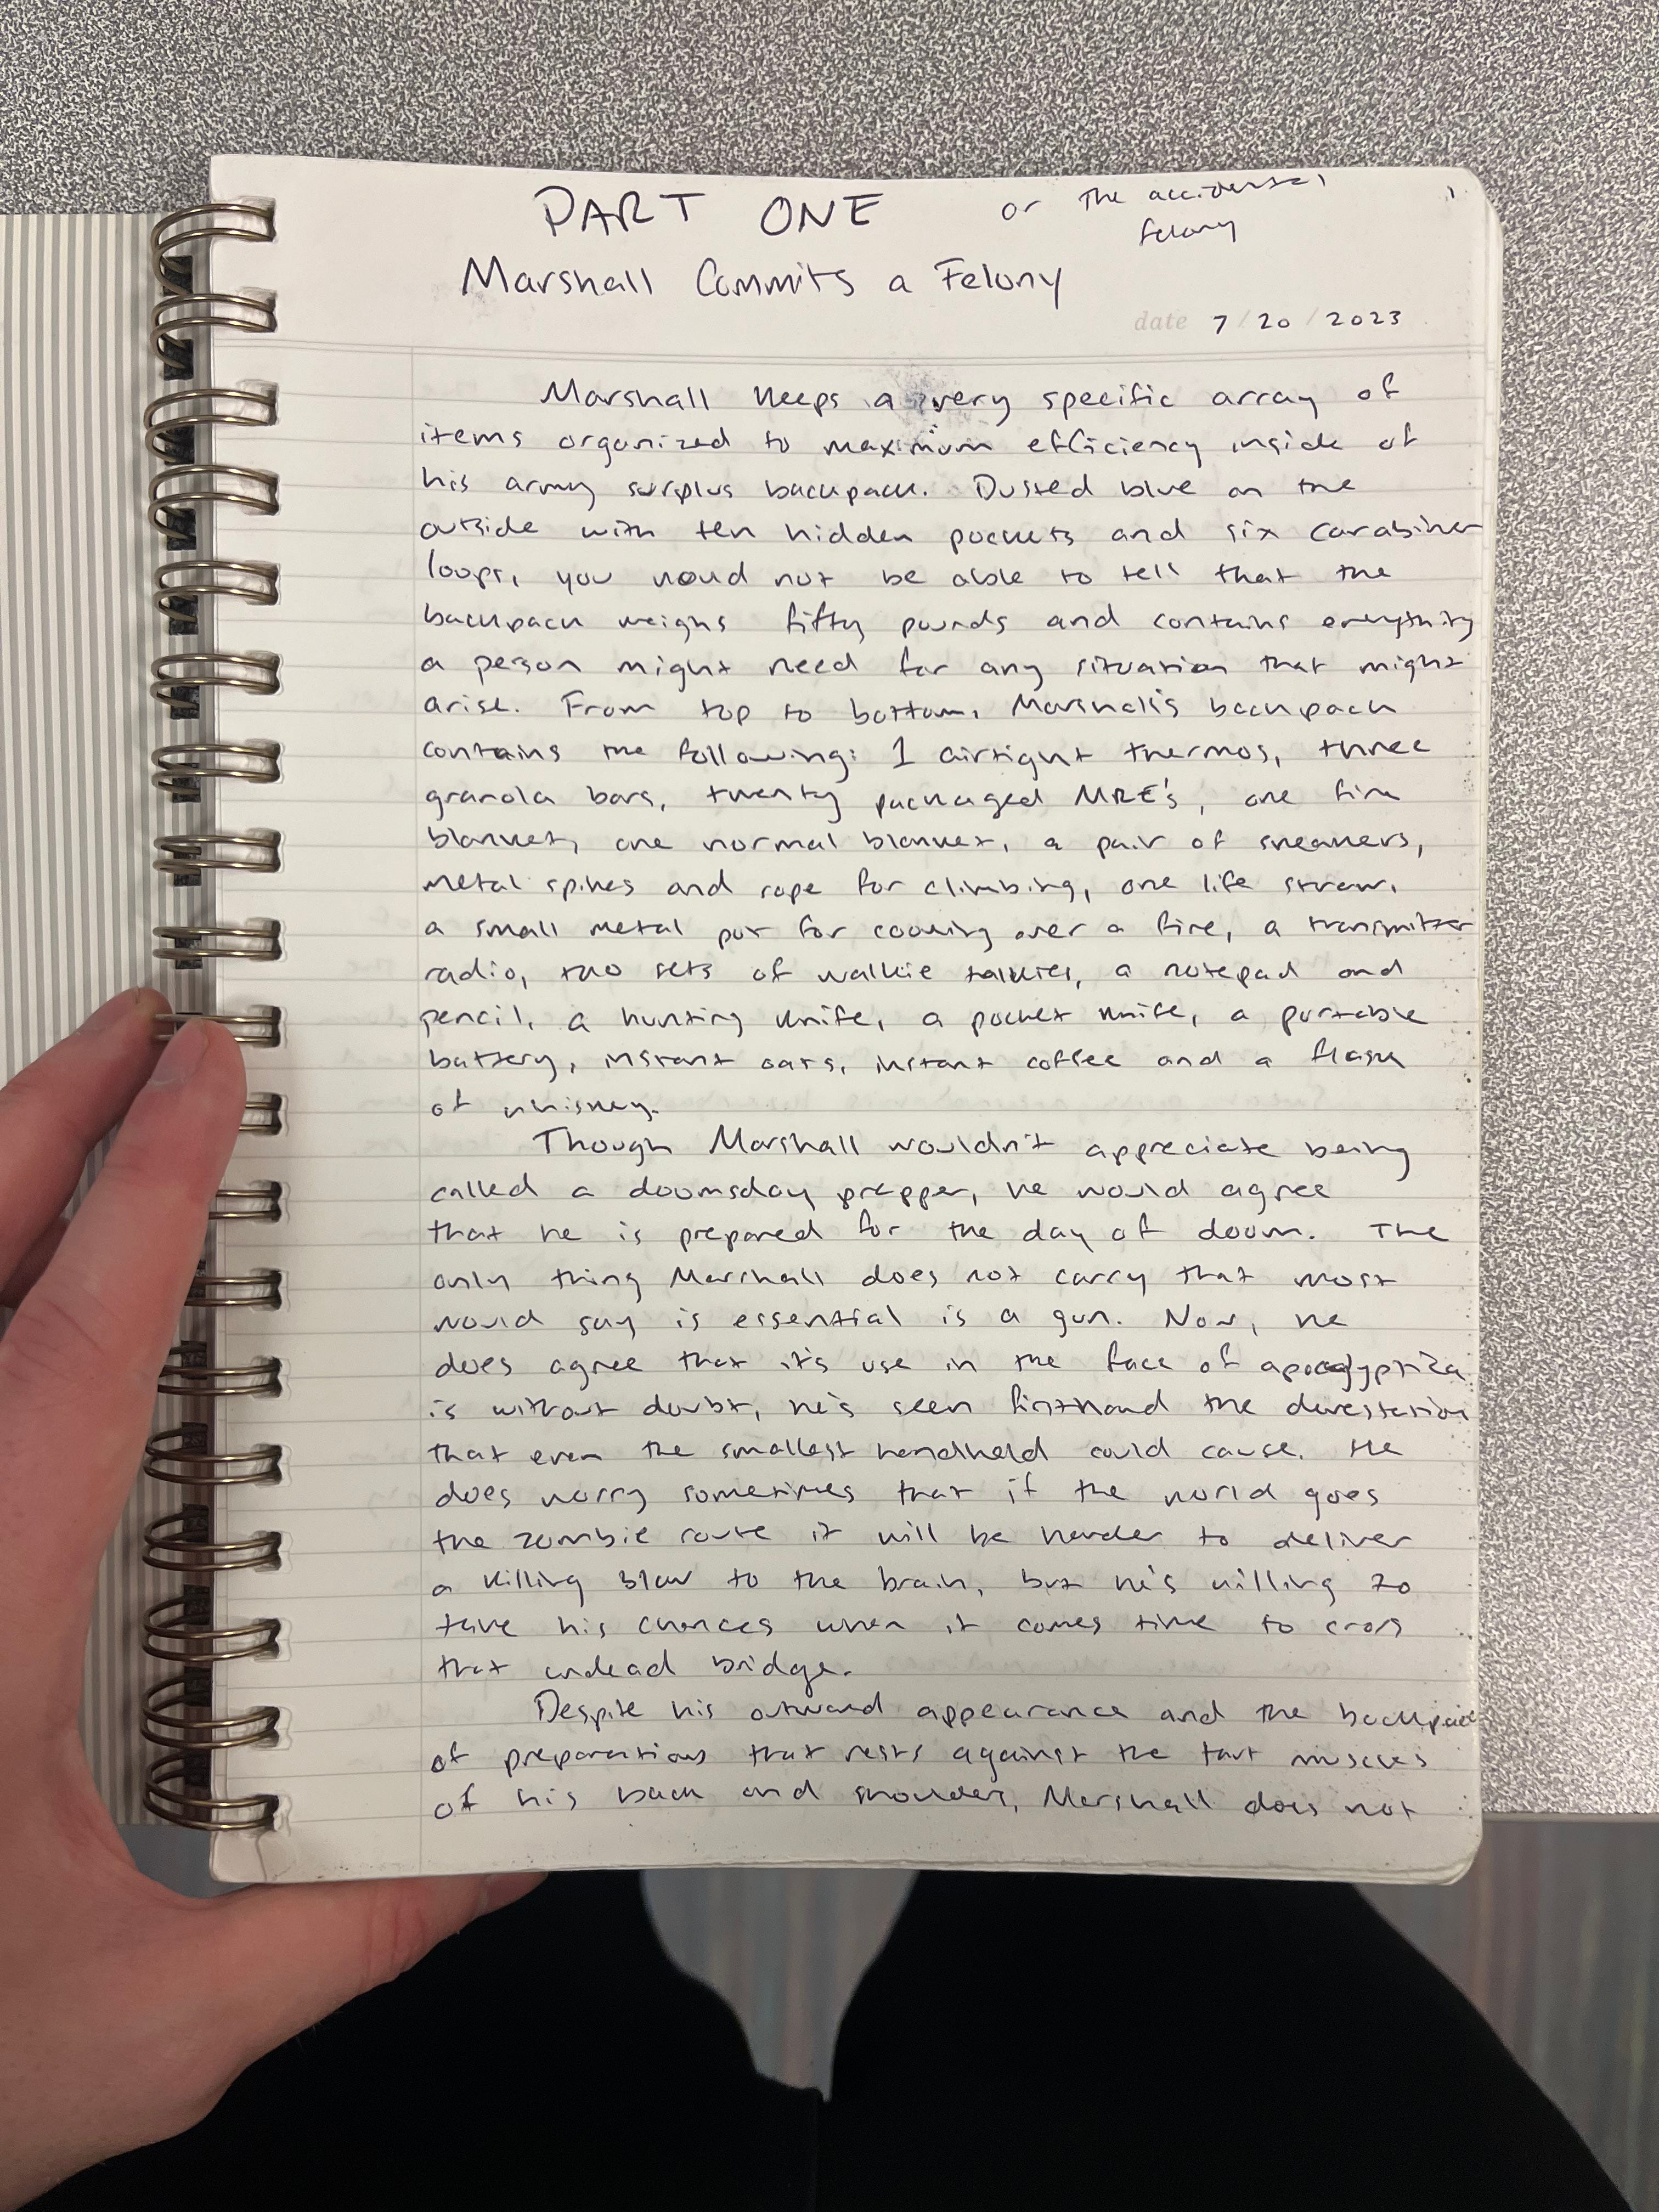 PART ONE
or The accidental
felony
1
Marshall Commits a Felony
date 7/20/2023
Marshall keeps a very specific array of
items organized to maximum efficiency inside of
his army surplus backpack. Dusted blue on the
outside with ten hidden pockets and six carabiner
loops, you woud not be able to tell that the
backpack weighs fifty pounds and contains everything
a person might need for any situation that might
arise. From top to bottom, Marshall's backpack
contains the following: 1 airtight thermos, three
granola bars, twenty packaged MRE's, one fire
blanket, one normal blanket, a pair of sneakers,
metal spikes and rope for climbing, one life straw,
a small metal pot for cooking over a fire, a transmitter
radio, two sets of walkie talkies, a notepad and
pencil, a hunting knife, a pocket knife, a portable
battery, instant oats, instant coffee and a flask
of whiskey.
Though Marshall wouldn't appreciate being
called a doomsday prepper, he would agree
that he is prepared for the day of doom. The
only thing Marshall does not carry that most
would say is essential is a gun. Now, he
does agree that it's use in the face of
is without doubt, he's seen firsthand the devestation
that even the smallest handheld could cause. He
does worry sometimes that if the world goes
the zombie route it will be harder to deliver
a killing blow to the brain, but he's willing to
take his chances when it comes time to cross
that undead bridge.
Despite his outward appearance and the backpack
of preparations that rests against the taut muscles
of his back and shoulders, Marshall does not